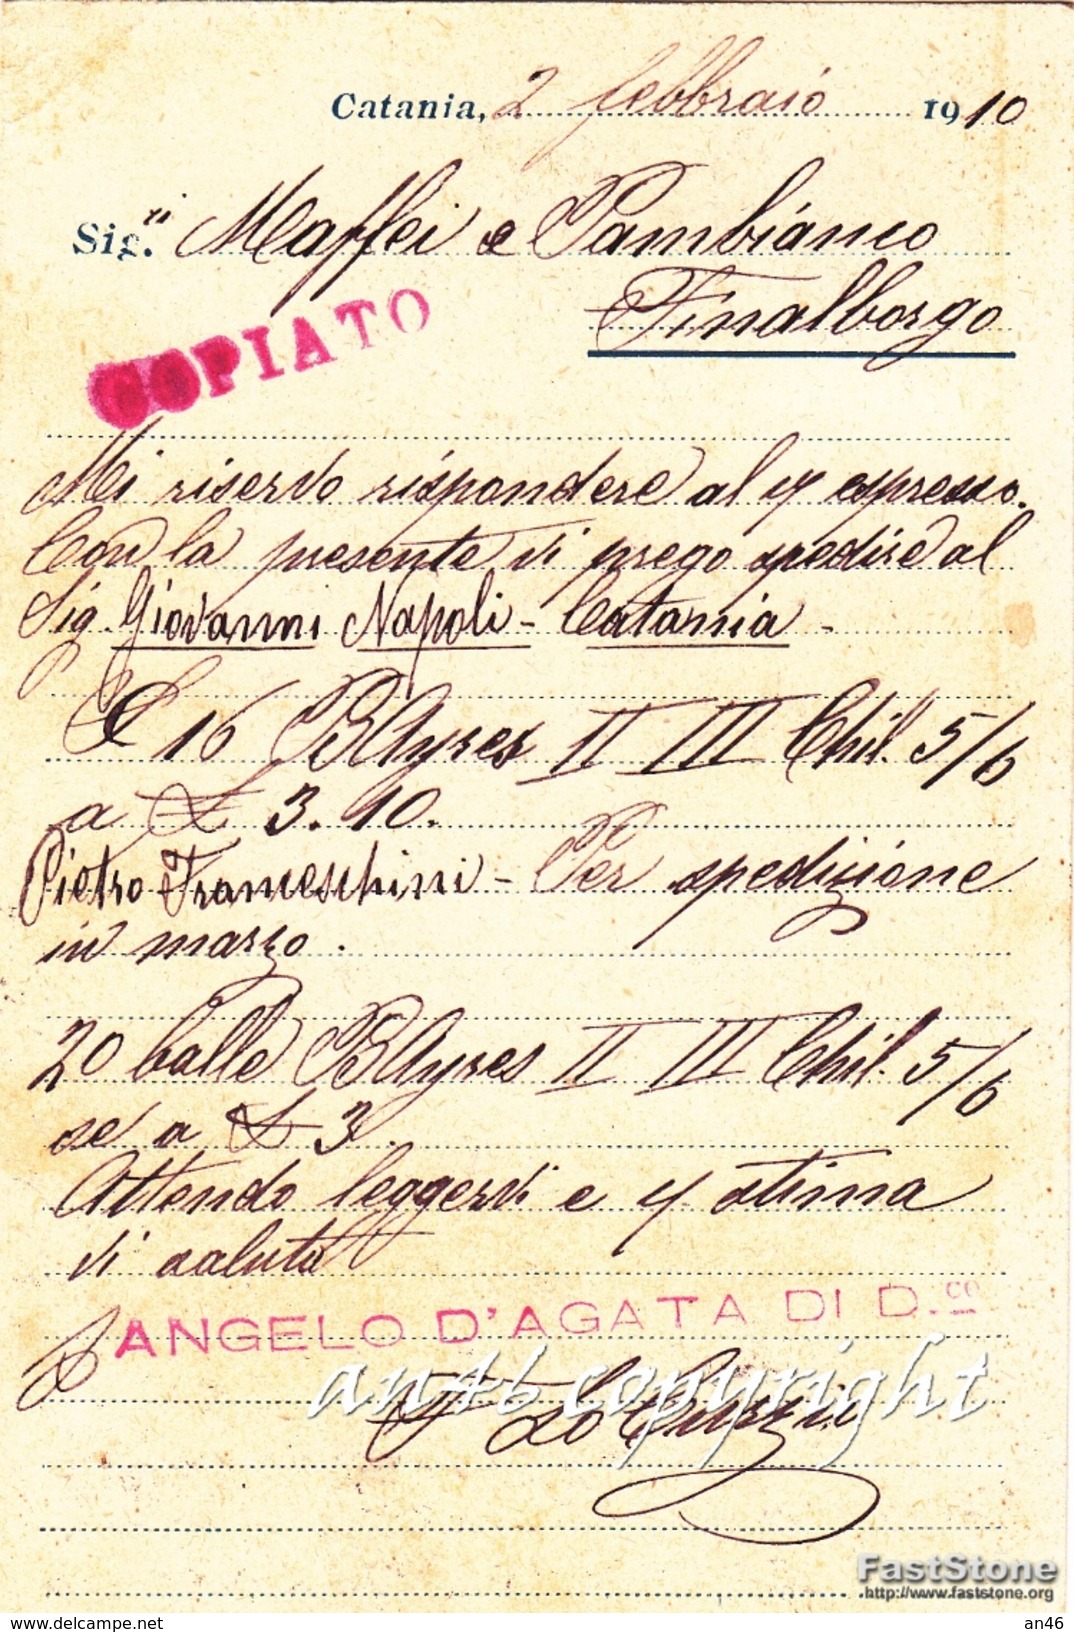 Catania, 2 febbraio 1910
Sig.ri Maffei e Pambianco
Finalborgo
COPIATO
Mi riservo rispondere al espresso.
Con la presente vi prego spedire al
Sig. Giovanni Napoli - Catania -
16 BAyres II III Chil. 5/6
a £ 3.10.
Pietro Franceschini - Per spedizione
in marzo.
20 balle BAyres II III Chil. 5/6
se a £ 3.
Attendo leggervi e stima
vi saluto
ANGELO D'AGATA DI D.co
an46 copyright
FastStone
http://www.faststone.org
www.delcampe.net
an46